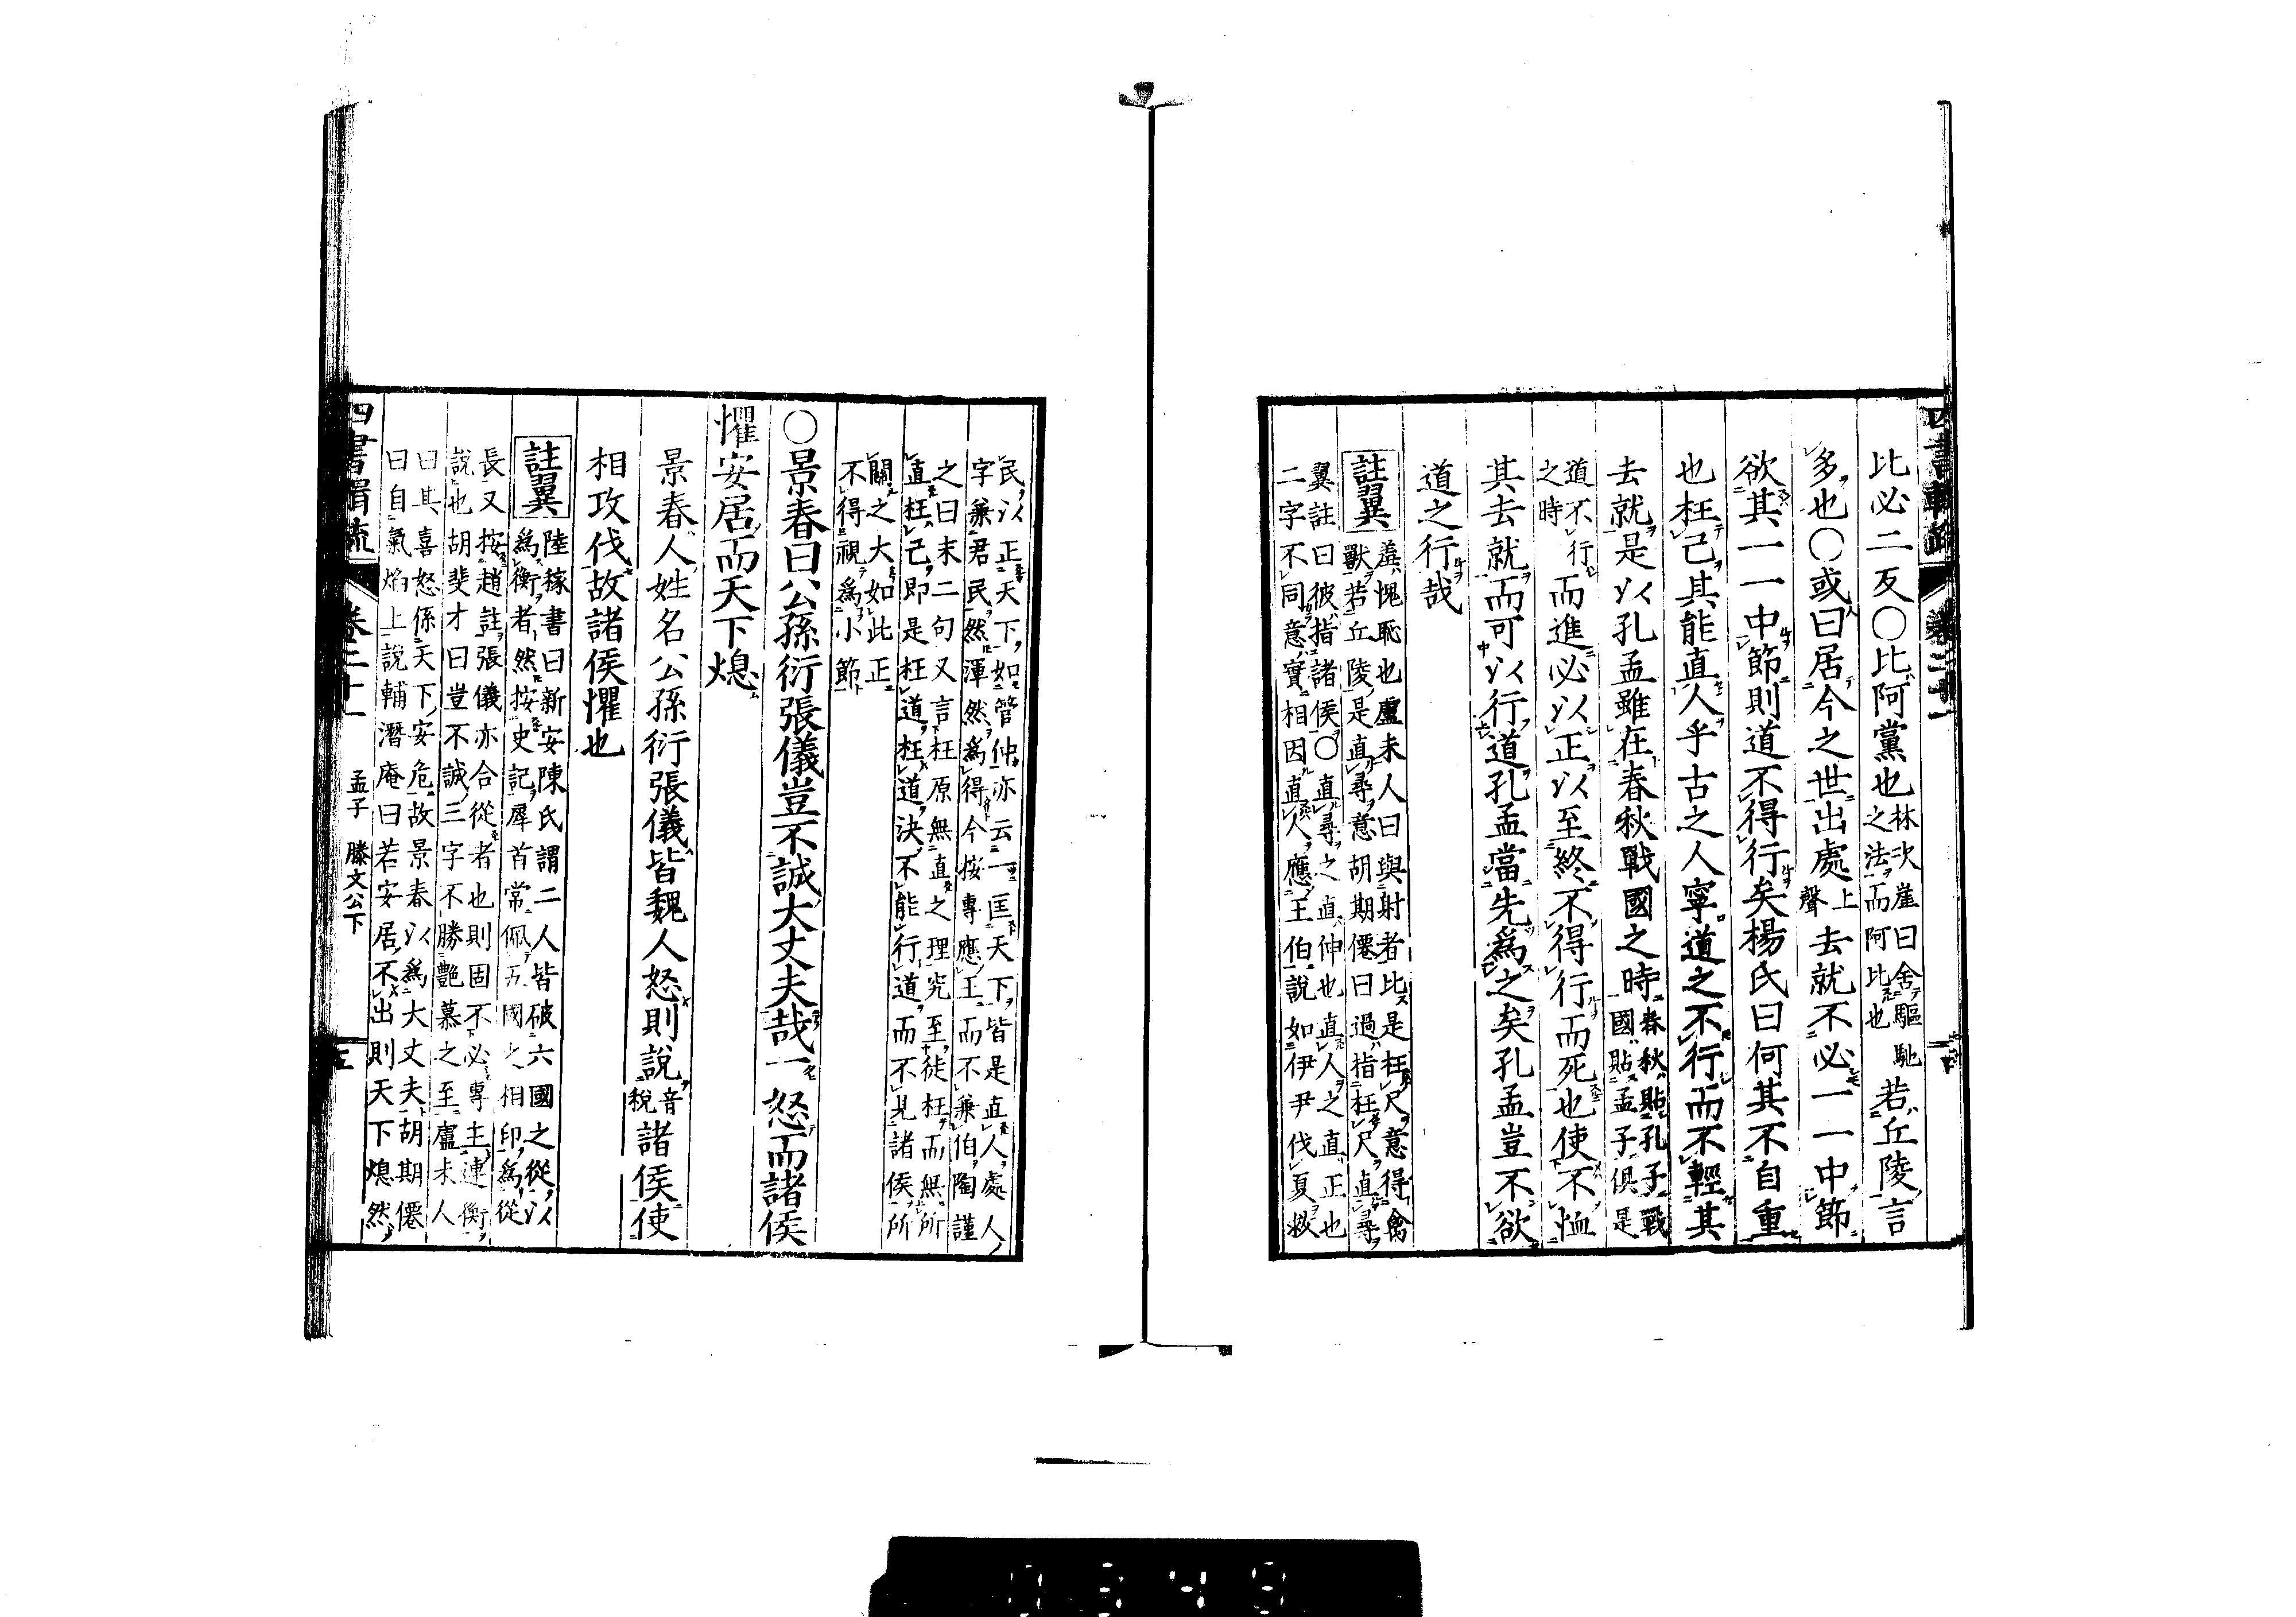 比必二反○比阿黨也林次崖曰舍驅馳之法而阿比也若丘陵言
多也○或曰居今之世出處上聲去就不必一一中節
欲其一一中節則道不得行矣楊氏曰何其不自重
也枉己其能直人乎古之人寧道之不行而不輕其
去就是以孔孟雖在春秋戰國之時春秋貼孔子戰國貼孟子俱是
道不行之時而進必以正以至終不得行而死也使不恤
其去就而可以行道孔孟當先爲之矣孔孟豈不欲
道之行哉
註翼
羞愧恥也盧未人曰與射者比是枉尺意得禽
獸若丘陵是直尋意胡期僊曰過指枉尺直尋
翼註曰彼指諸侯○直尋之直伸也直人之直正也
二字不同意實相因直人應王伯說如伊尹伐夏救
民以正天下如管仲亦云一匡天下皆是直人處人
字兼君民然渾然爲得今按專應王而不兼伯陶謹
之曰末二句又言枉原無直之理究至徒枉而無所
直枉己即是枉道枉道決不能行道而不見諸侯所
關之大如此正
不得視爲小節
○景春曰公孫衍張儀豈不誠大丈夫哉一怒而諸侯
懼安居而天下熄
景春人姓名公孫衍張儀皆魏人怒則說音稅諸侯使
相攻伐故諸侯懼也
註翼
陸稼書曰新安陳氏謂二人皆破六國之從以
爲衡者然按史記犀首常佩五國之相印爲從
長又按趙註張儀亦合從者也則固不必專主連衡
說也胡斐才曰豈不誠三字不勝艷慕之至盧未人
曰其喜怒係天下安危故景春以爲大丈夫胡期僊
曰自氣焰上說輔潛庵曰若安居不出則天下熄然
四書 卷二十一 孟子 滕文公下 三